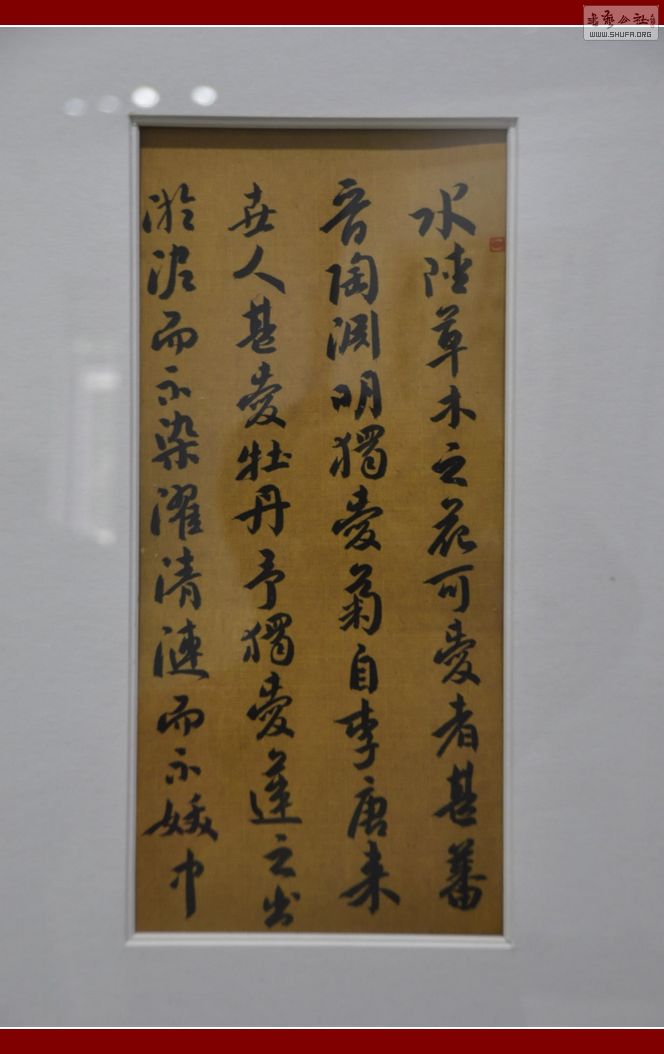 水陸草木之花可愛者甚蕃
晉陶渊明獨愛菊自李唐来
世人甚愛牡丹予獨愛蓮之出
淤泥而不染濯清漣而不妖中
WWW.SHUFA.ORG